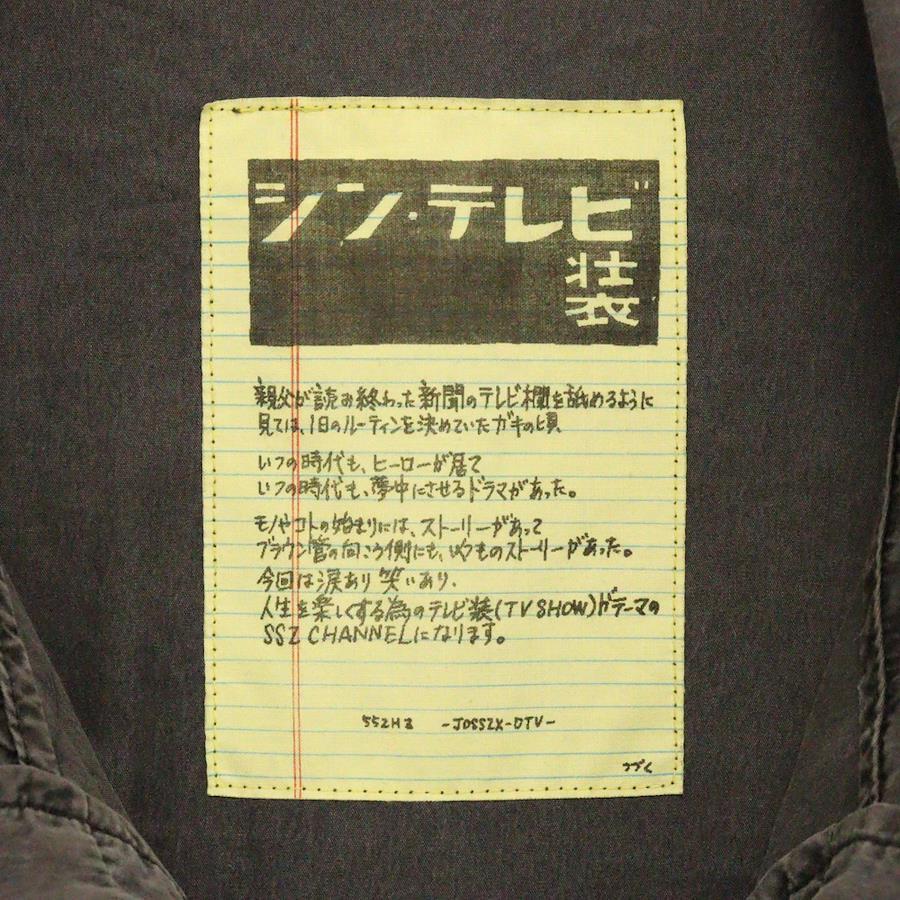 シン・テレビ
装
親父が読み終わった新聞のテレビ欄を舐めるように
見ては、1日のルーティンを決めていたガキの頃
いつの時代も、ヒーローが居て
いつの時代も、夢中にさせるドラマがあった。
モノやコトの始まりには、ストーリーがあって
ブラウン管の向こう側にも、いくつものストーリーがあった。
今回は涙あり笑いあり、
人生を楽しくする為のテレビ装(TV SHOW)がテーマの
SSZ CHANNELになります。
55ZHz -JOSSZX-DTV-
つづく